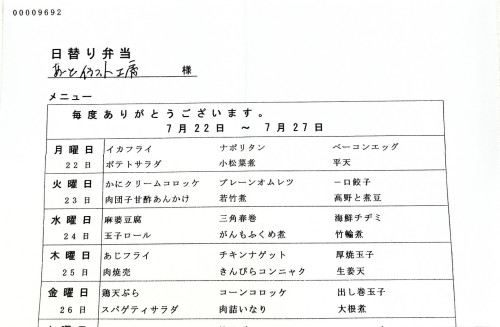 00009692
日替り弁当
あーとイラスト工房 様
メニュー
毎度ありがとうございます。
7月22日 ～ 7月27日
月曜日 イカフライ ナポリタン ベーコンエッグ
22日 ポテトサラダ 小松菜煮 平天
火曜日 かにクリームコロッケ プレーンオムレツ 一口餃子
23日 肉団子甘酢あんかけ 若竹煮 高野と煮豆
水曜日 麻婆豆腐 三角春巻 海鮮チヂミ
24日 玉子ロール がんもふくめ煮 竹輪煮
木曜日 あじフライ チキンナゲット 厚焼玉子
25日 肉焼売 きんぴらコンニャク 生姜天
金曜日 鶏天ぷら コーンコロッケ 出し巻玉子
26日 スパゲティサラダ 肉詰いなり 大根煮